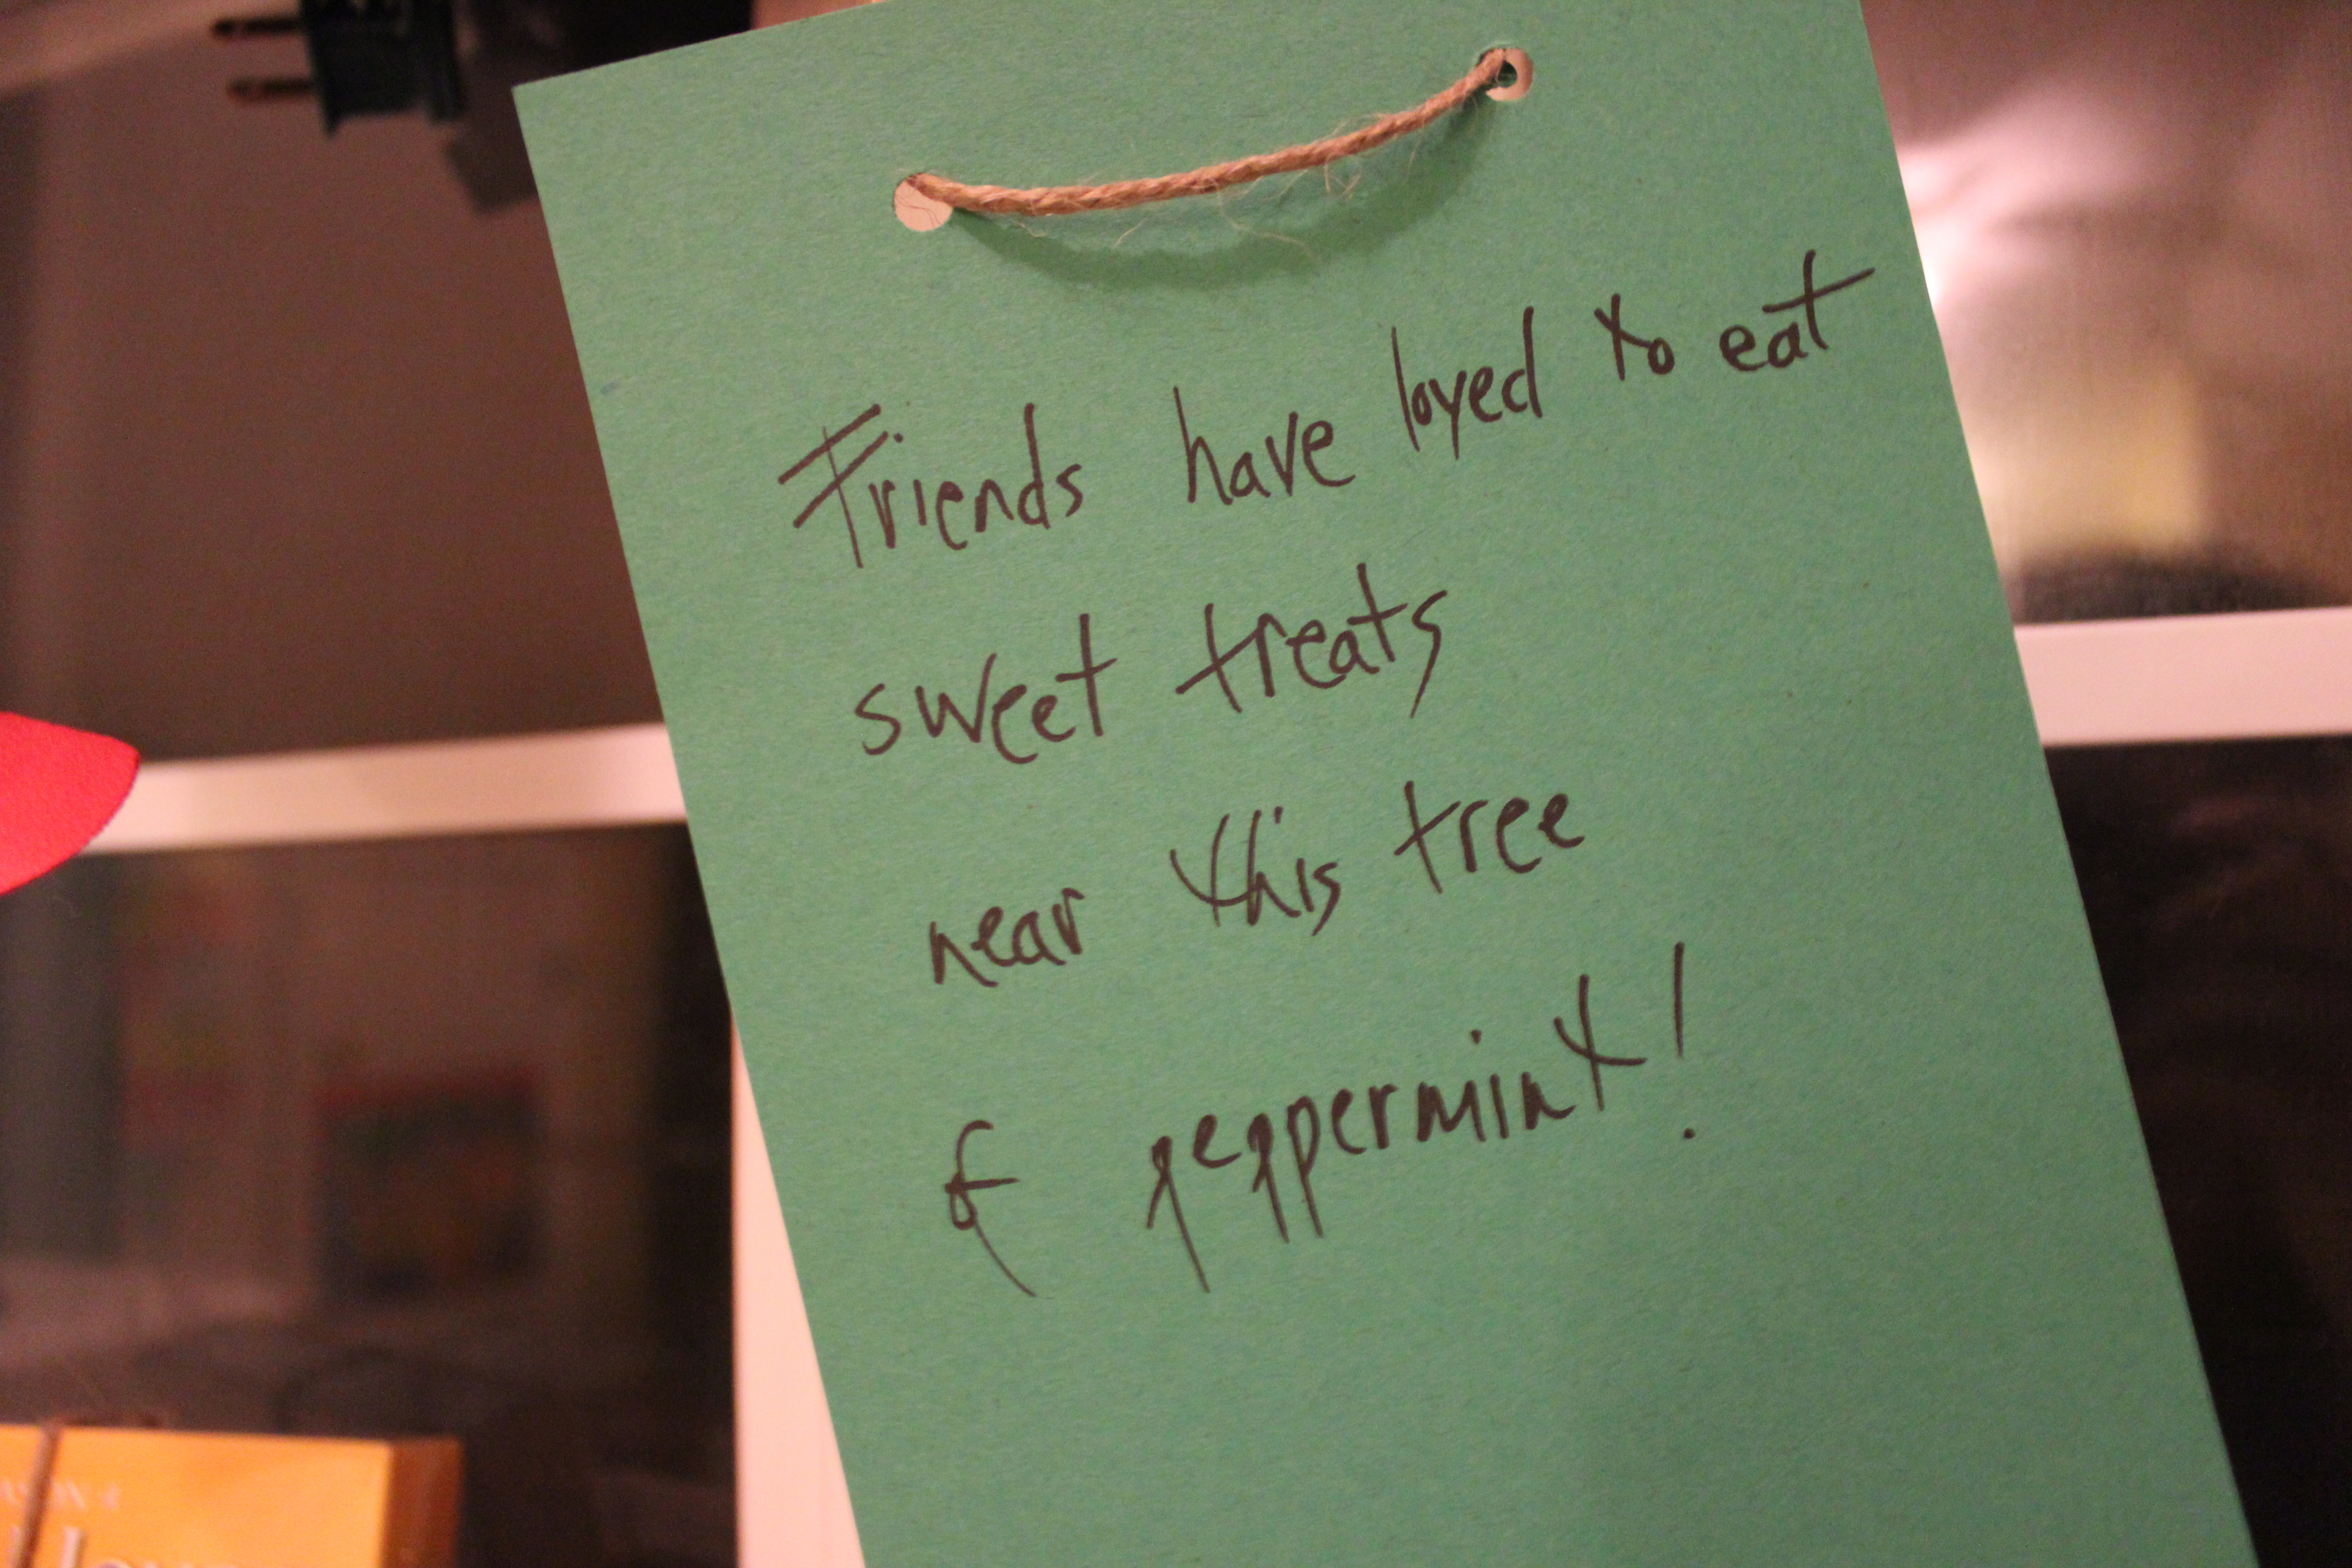 Friends have loved to eat
sweet treats
near this tree
of peppermint!